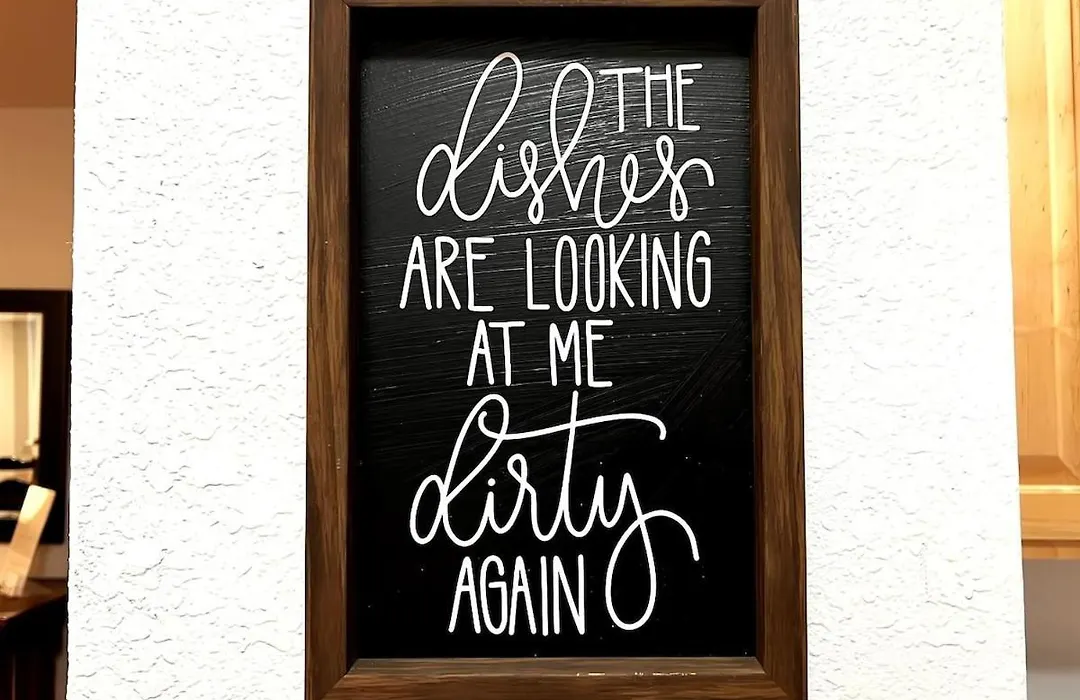 THE
dishes
ARE LOOKING
AT ME
dirty
AGAIN